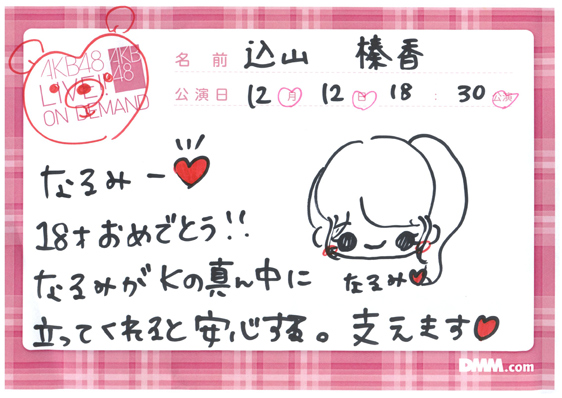 AKB48
LIVE!!
ON DEMAND
AKB
48
名前 込山 榛香
公演日 12月 12日 18:30公演
なるみー
18才おめでとう!!
なるみがKの真ん中に
立ってくれると安心する。支えます
なるみ
DMM.com